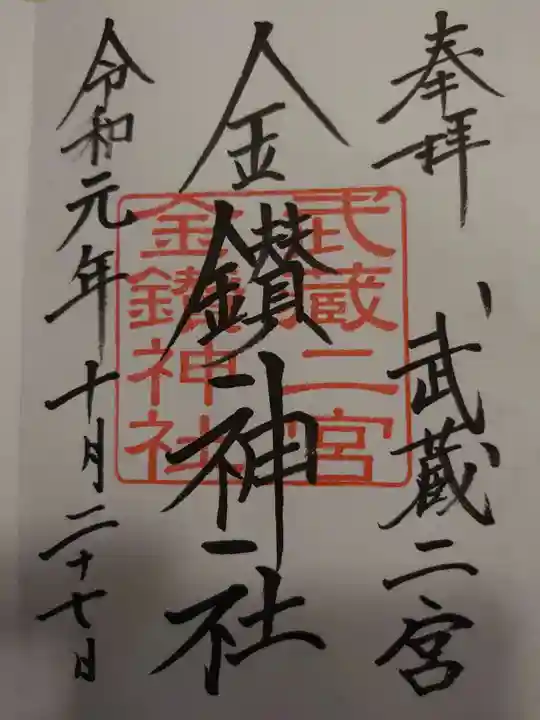 奉拝
武蔵二宮
金鑚神社
武蔵二宮
金鑚神社
令和元年十月二十七日